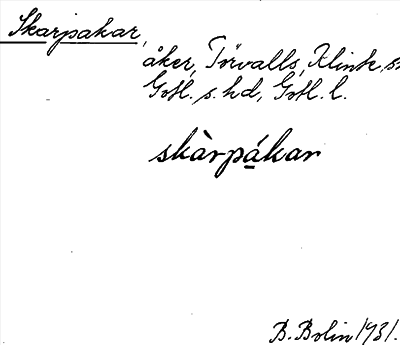 Skarpakar,
åker, Torvalls, Klinte sn
Gotl. s. hd, Gotl. l.
skàrpákar
B. Bolin 1931.